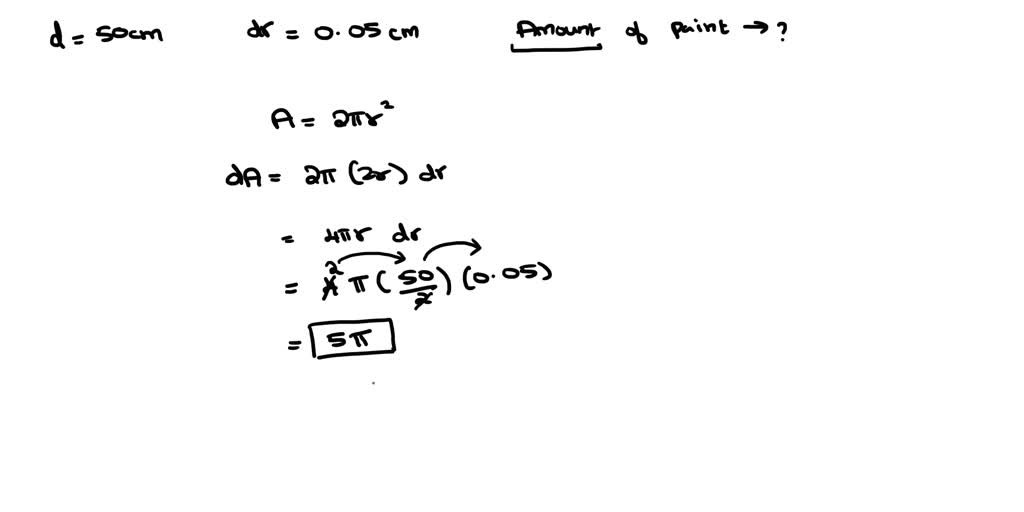 d = 50cm dr = 0.05 cm Amount of paint → ?
A = 2πr²
dA = 2π (2r) dr
= 4πr dr
= 4 2 π ( 50/2 ) (0.05)
= 5π